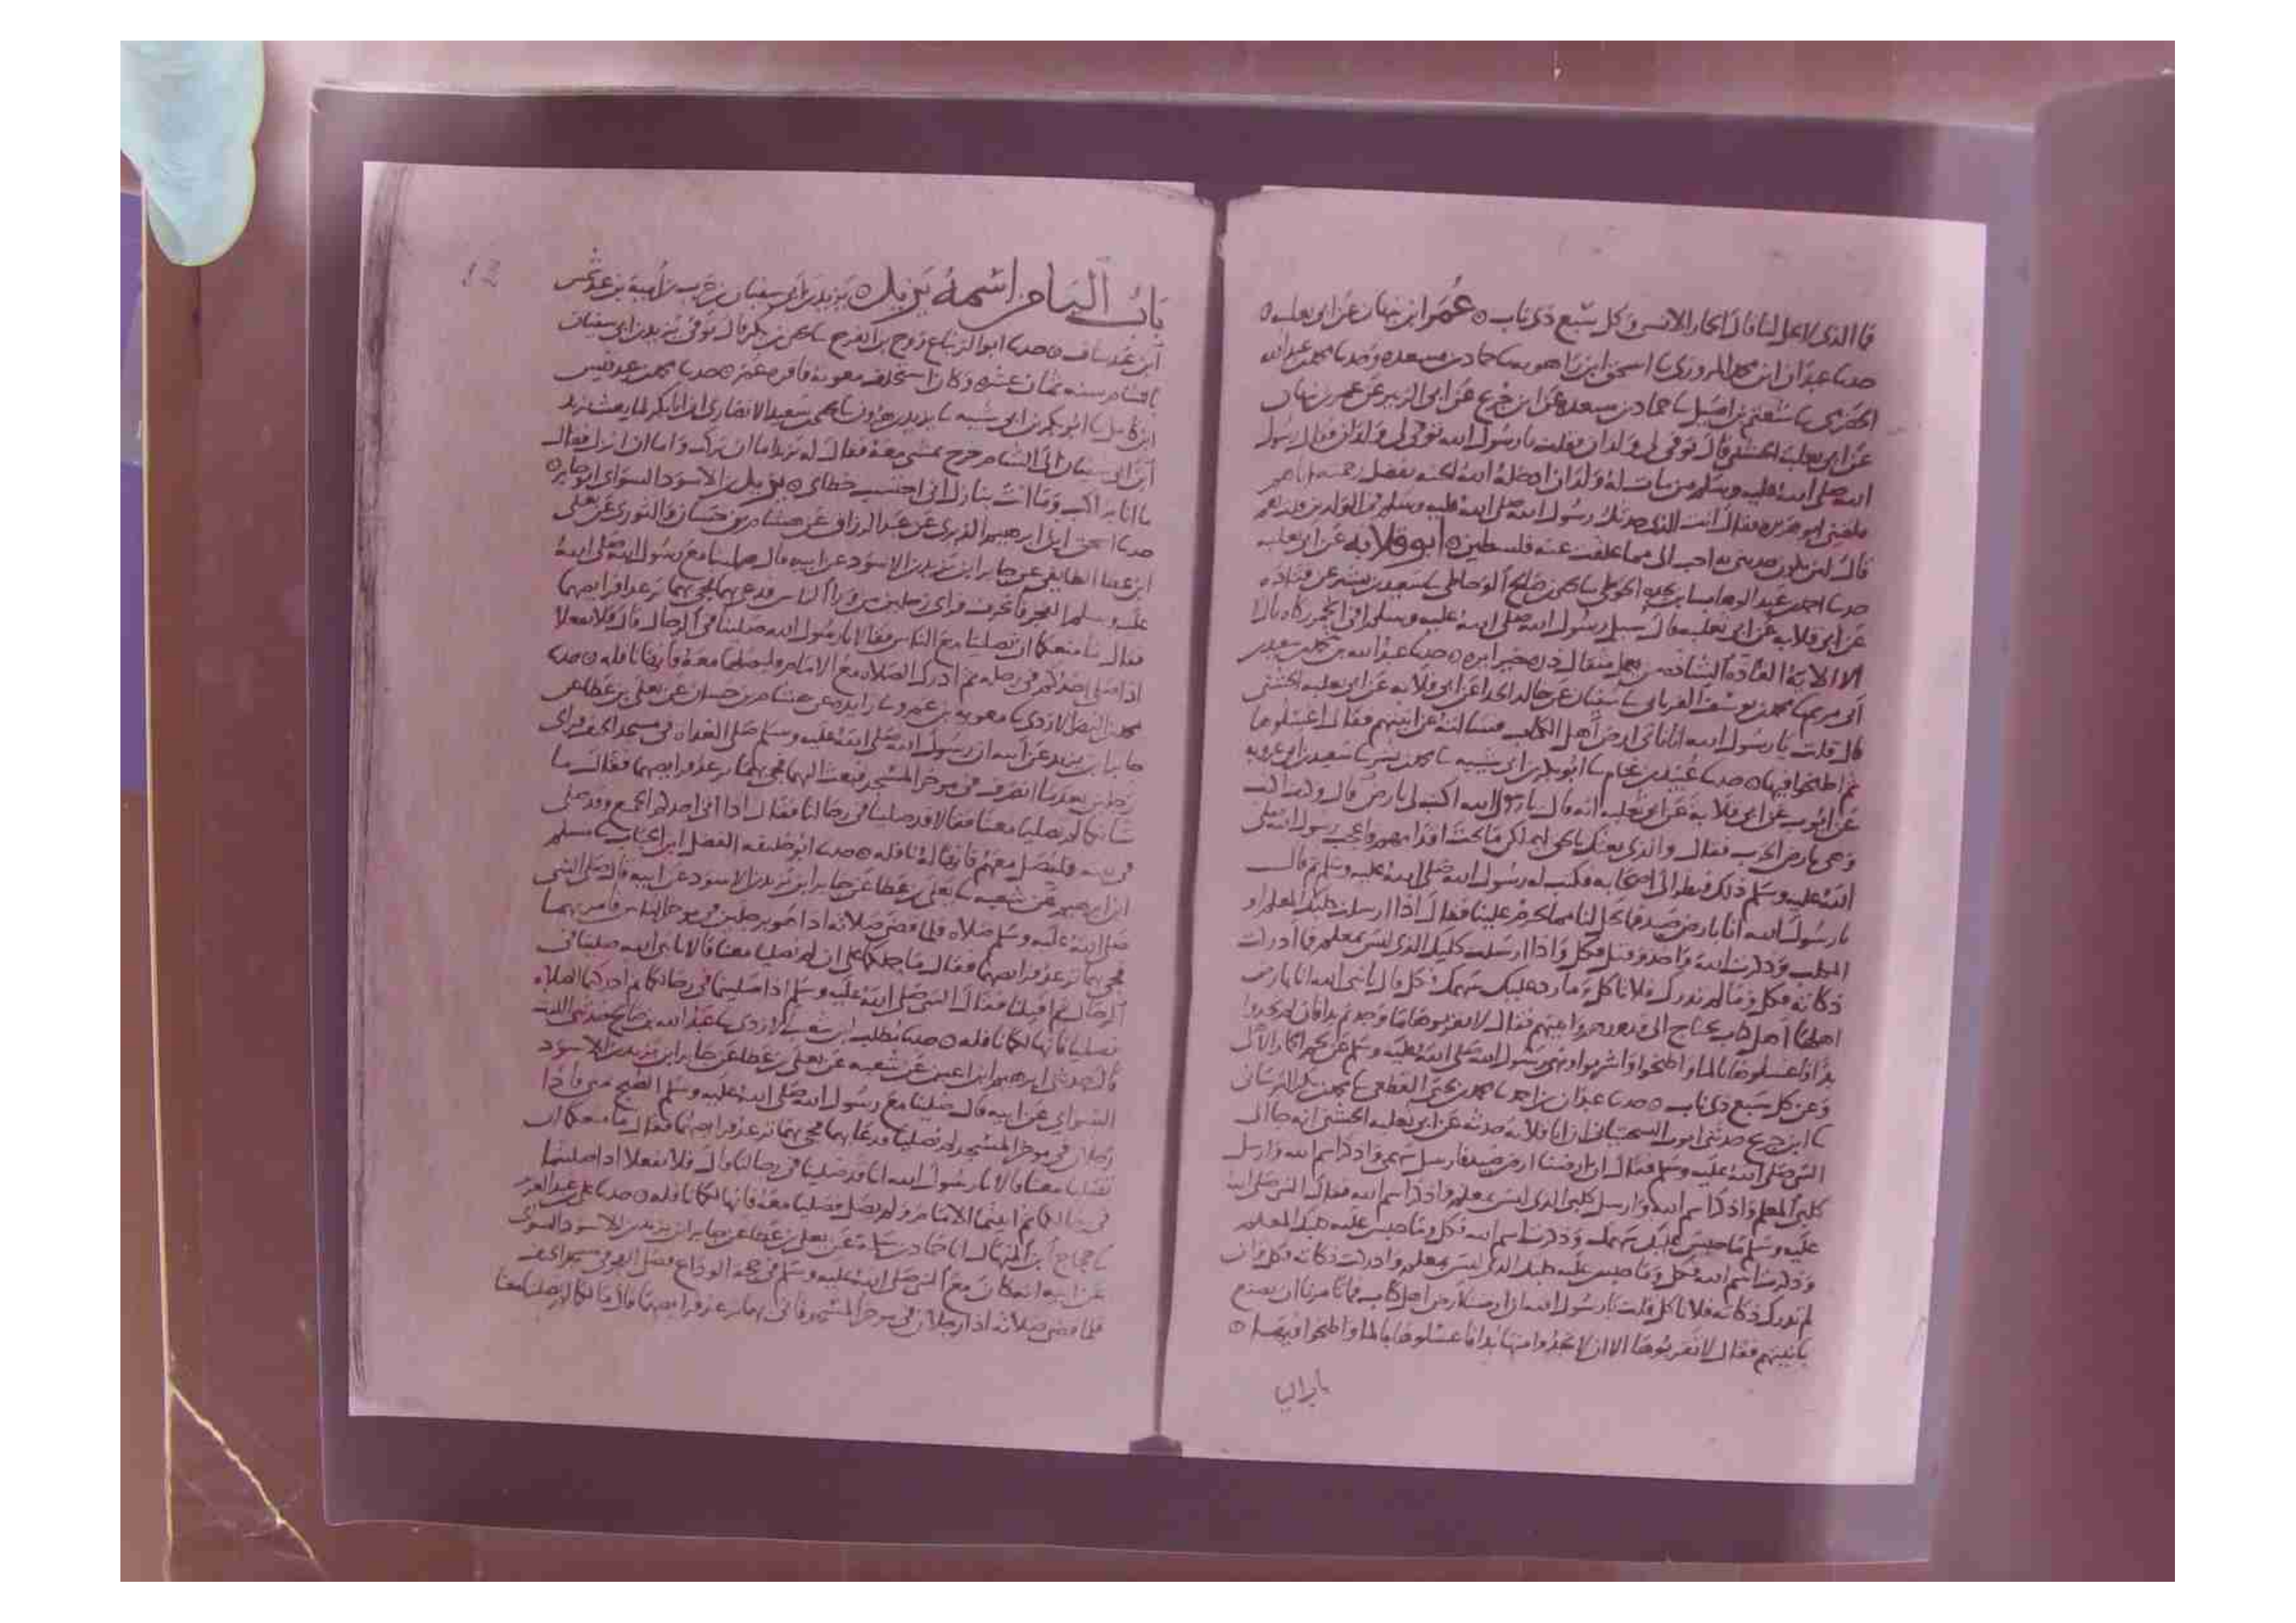 فما الذي لا يحل لنا قال الحمار الانسي وكل سبع ذي ناب ٥ عمر ابن نبهان عن ابي ثعلبه ٥
حدثنا عبدان ابن محمد المروزي ثنا اسحق ابن راهويه ثنا حماد بن مسعده وحدثنا محمد بن عبد الله
الحضرمي ثنا حماد بن مسعده عن ابن جريج عن ابي الزبير عن عمر بن نبهان
عن ابي ثعلبه الخشني قال توفي لي ولدان فقلت يا رسول الله توفي لي ولدان فقال رسول
الله صلى الله عليه وسلم من مات له ولدان ادخله الله الجنه بفضل رحمته اياهم
فلقيني ابو هريره فقال انت الذي حدثك رسول الله صلى الله عليه وسلم في الولدين قلت نعم
قال لئن يكون حدثني به احب الي مما غلقت عنه فلسطين ٥ ابو قلابه عن ابي ثعلبه
حدثنا احمد بن عبد الوهاب بن نجده الحوطي ثنا يحيى بن صالح الوحاظي ثنا سعيد بن بشير عن قتاده
عن ابي قلابه عن ابي ثعلبه قال سيل رسول الله صلى الله عليه وسلم افي الحمر زكاه قال لا
الا الايه الفاذه الشاذه من يعمل مثقال ذره خيرا يره ٥ حدثنا عبد الله بن محمد بن سعيد بن
ابي مريم ثنا محمد بن يوسف الفريابي ثنا سفيان عن خالد الحذا عن ابي قلابه عن ابي ثعلبه الخشني
قال قلت يا رسول الله انا ناتي ارض اهل الكتاب فنسالهم عن انيتهم فقال اغسلوها
ثم اطبخوا فيها ٥ حدثنا عبيد بن غنام ثنا ابو بكر بن ابي شيبه ثنا محمد بن بشر ثنا سعيد بن ابي عروبه
عن ايوب عن ابي قلابه عن ابي ثعلبه انه قال يا رسول الله اكتب لي بارض قال وكيف اكتب
وهي بارض الحرب فقال والذي بعثك بالحق ليملكن ما تحت اقدامهم فاعجب رسول الله صلى
الله عليه وسلم ذلك فنظر الى اصحابه فكتب له رسول الله صلى الله عليه وسلم ثم قال
يا رسول الله انا بارض صيد فما يحل لنا مما يحرم علينا فقال اذا ارسلت كلبك المعلم او
المكلب وذكرت الله واخذ وقتل فكل واذا ارسلت كلبك الذي ليس بمعلم فما ادركت
ذكاته فكل وما لم تدرك فلا تاكل وما رد عليك سهمك فكل قال يا نبي الله انا بارض
اهلها اهل كتاب نحتاج الى قدورهم وانيتهم فقال لا تقربوها ما وجدتم بدا فان لم تجدوا
بدا فاغسلوها بالما واطبخوا واشربوا ونهى رسول الله صلى الله عليه وسلم عن لحم الحمار الاهلي
وعن كل سبع ذي ناب ٥ حدثنا عبدان بن احمد ثنا محمد بن يحيى القطعي ثنا محمد بن بكر البرساني
ثنا ابن جريج حدثني ايوب السختياني ان ابا قلابه حدثه عن ابي ثعلبه الخشني انه جا الى
النبي صلى الله عليه وسلم فقال ان ارضنا ارض صيد فارسل سهمي واذكر اسم الله وارسل
كلبي المعلم واذكر اسم الله وارسل كلبي الذي ليس بمعلم واذكر اسم الله فقال النبي صلى الله
عليه وسلم ما حبس عليك سهمك وذكرت اسم الله فكل وما حبس عليك كلبك المعلم
وذكرت اسم الله فكل وما حبس عليك كلبك الذي ليس بمعلم وادركت ذكاته فكل وان
لم تدرك ذكاته فلا تاكل قلت يا رسول الله ان ارضنا ارض اهل كتاب فما تامرنا ان نصنع
بانيتهم فقال لا تقربوها الا ان لا تجدوا منها بدا فاغسلوها بالما واطبخوا فيها ٥
باب اليا
12
باب اليا من اسمه يزيد ٥ يزيد بن ابي سفيان بن حرب بن اميه بن عبد شمس
ابن عبد مناف ٥ حدثنا ابو الزنباع روح بن الفرج ثنا يحيى بن بكير قال توفي يزيد بن ابي سفيان
بالشام سنه ثمان عشره وكان استخلف معويه فاقره عمر ٥ حدثنا محمد بن عبدوس
ابن كامل ثنا ابو بكر بن ابي شيبه ثنا يزيد بن هرون ثنا يحيى بن سعيد الانصاري ان ابا بكر لما بعث يزيد
ابن ابي سفيان الى الشام خرج يمشي معه فقال له يزيد اما ان تركب واما ان انزل فقال
ما انا براكب وما انت بنازل اني احتسب خطاي ٥ يزيد بن الاسود السواي ابو جابر ٥
حدثنا اسحق ابن ابرهيم الدبري عن عبد الرزاق عن هشام بن حسان والثوري عن يعلى
ابن عطا الطايفي عن جابر ابن يزيد بن الاسود عن ابيه قال صلينا مع رسول الله صلى الله
عليه وسلم الفجر فانحرف فراى رجلين من ورا الناس فدعا بهما فجي بهما ترعد فرايصهما
فقال ما منعكما ان تصليا مع الناس فقالا يا رسول الله صلينا في الرحال قال فلا تفعلا
اذا صلى احدكم في رحله ثم ادرك الصلاه مع الامام فليصلها معه فانها نافله ٥ حدثنا
محمد بن النضر الازدي ثنا معويه بن عمرو ثنا زايده عن هشام بن حسان عن يعلى بن عطا عن
جابر ابن يزيد عن ابيه ان رسول الله صلى الله عليه وسلم صلى الغداه في مسجد الخيف فراى
رجلين بعد ما انصرف في موخر المسجد فبعث اليهما فجي بهما ترعد فرايصهما فقال ما
شانكما لم تصليا معنا فقالا قد صلينا في رحالنا فقال اذا اتى احدكم الجمع وقد صلى
في بيته فليصل معهم فانها له نافله ٥ حدثنا ابو خليفه الفضل ابن الحباب ثنا مسلم
ابن ابرهيم عن شعبه ثنا يعلى بن عطا عن جابر ابن يزيد بن الاسود عن ابيه قال صلى النبي
صلى الله عليه وسلم صلاه فلما قضى صلاته اذا هو برجلين في موخر الناس فامر بهما
فجي بهما ترعد فرايصهما فقال ما حملكما على ان لم تصليا معنا قالا يا نبي الله صلينا في
الرحال ثم اقبلنا فقال النبي صلى الله عليه وسلم اذا صليتما في رحالكما ثم ادركتما الصلاه
فصليا فانها لكما نافله ٥ حدثنا مطلب ابن شعيب الازدي ثنا عبد الله بن صالح حدثني الليث
قال حدثني ابرهيم ابن اعين عن شعبه عن يعلى بن عطا عن جابر ابن يزيد بن الاسود
السواي عن ابيه قال صلينا مع رسول الله صلى الله عليه وسلم الصبح بمنى فاذا
رجلان في موخر المسجد لم يصليا فدعا بهما فجي بهما ترعد فرايصهما فقال ما منعكما ان
تصليا معنا قالا يا رسول الله انا قد صلينا في رحالنا قال فلا تفعلا اذا صليتما
في رحالكما ثم اتيتما الامام ولم يصل فصليا معه فانها لكما نافله ٥ حدثنا علي بن عبد العزيز
ثنا حجاج ابن المنهال انا حماد بن سلمة عن يعلى بن عطا عن جابر ابن يزيد بن الاسود السواي
عن ابيه انه كان مع النبي صلى الله عليه وسلم في حجه الوداع فصلى الفجر في مسجد الخيف
فلما قضى صلاته اذا رجلان في موخر المسجد فاتي بهما ترعد فرايصهما قال ما لكما لم تصليا معنا